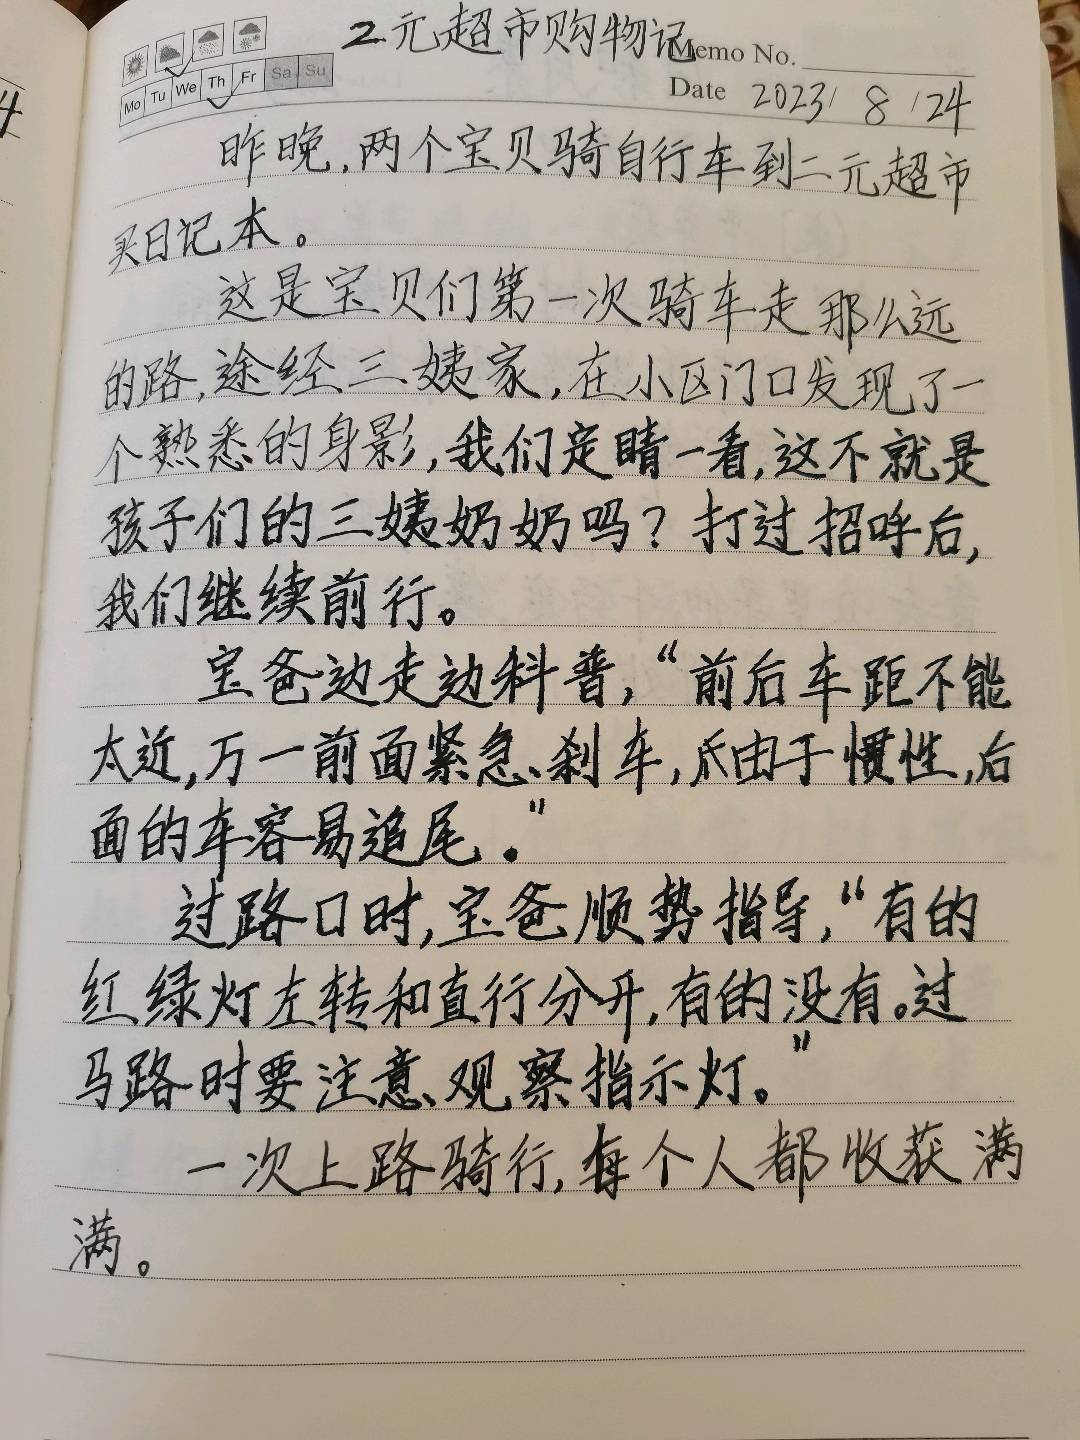 2元超市购物记
Memo No.
Mo Tu We Th Fr Sa Su
Date 2023/ 8 /24
昨晚,两个宝贝骑自行车到二元超市
买日记本。
这是宝贝们第一次骑车走那么远
的路,途经三姨家,在小区门口发现了一
个熟悉的身影,我们定睛一看,这不就是
孩子们的三姨奶奶吗?打过招呼后,
我们继续前行。
宝爸边走边科普,“前后车距不能
太近,万一前面紧急刹车,由于惯性,后
面的车容易追尾。”
过路口时,宝爸顺势指导,“有的
红绿灯左转和直行分开,有的没有。过
马路时要注意观察指示灯。”
一次上路骑行,每个人都收获满
满。